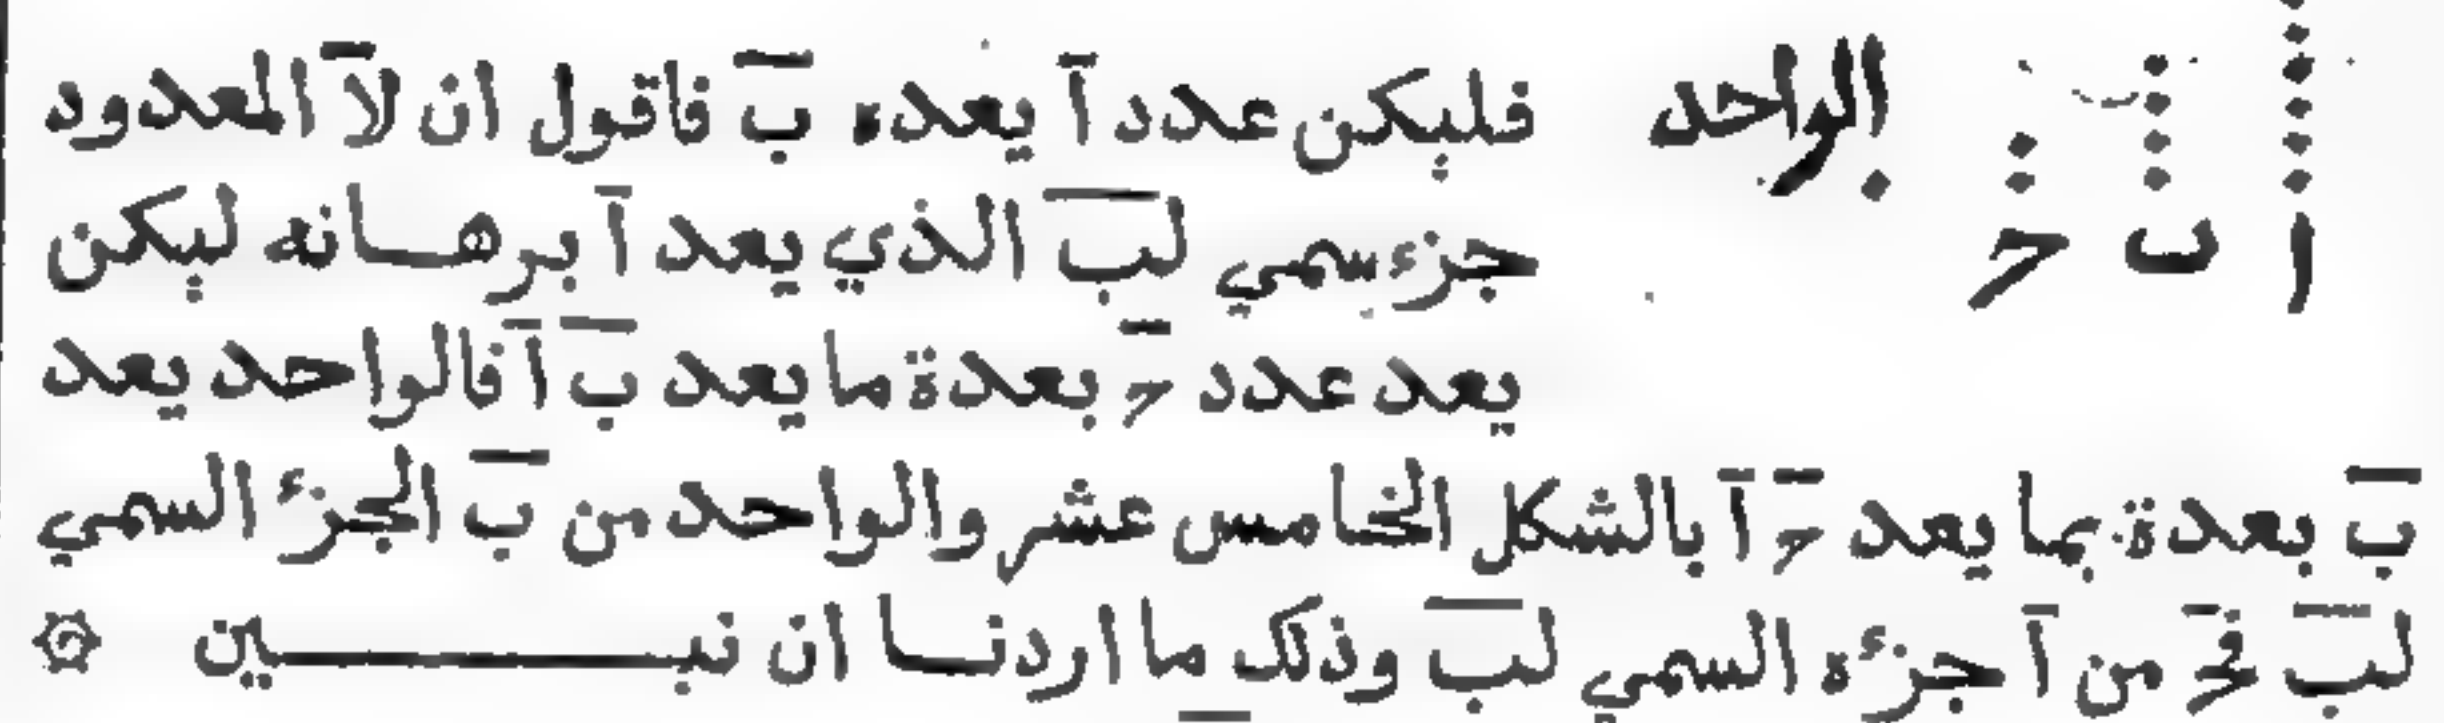 الواحد
ا ب ح
فليكن عدد آ يعده ب فاقول ان لآ المعدود
جزء سمي لب الذي يعد آ برهانه ليكن
يعد عدد ح بعدة ما يعد ب آ فالواحد يعد
ب بعدة بما يعد ح آ بالشكل الخامس عشر والواحد من ب الجزء السمي
لب فح من آ جزءه السمي لب وذلك ما اردنا ان نبين